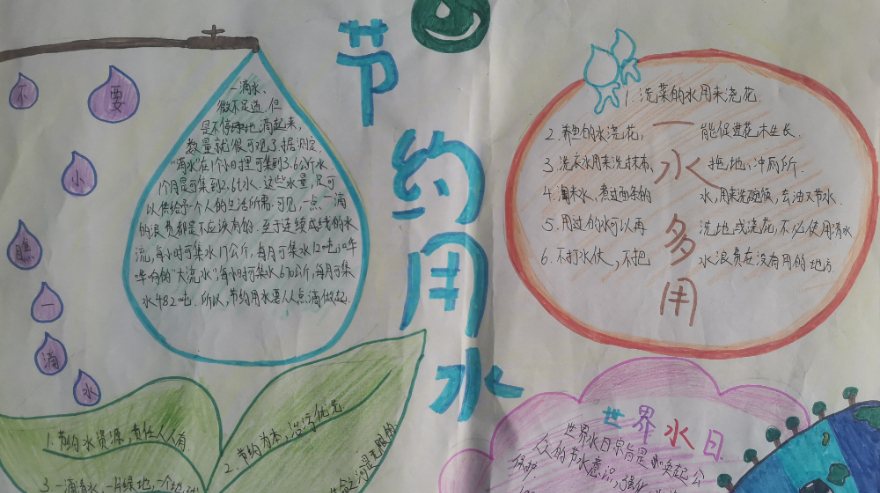 节约用水
不要小瞧一滴水
一滴水,
微不足道.但
是不停地滴起来,
数量就很可观了.据测定
"滴水"在1个小时里可集到3.6公斤水
1个月里可集到2.6t水.这些水量,足可
以供给一个人的生活所需.可见,一点一滴
的浪费都是不应该有的.至于连续成线的水
流,每小时可集水17公斤,每月可集水12吨
的"大流水",每小时可集水670公斤,每月可集
水482吨.所以,节约用水要人人点滴做起.
一水多用
1.洗菜的水用来浇花
2.养鱼的水浇花,能促进花木生长.
3.洗衣水用来洗抹布、拖地、冲厕所.
4.淘米水、煮过面条的水,用来洗碗筷,去油又节水.
5.用过的水可以再洗地或浇花,不必使用清水
6.不打水仗,不把水浪费在没有用的地方
1.节约水资源,责任人人有
2.节约为本,治污优先
3.一滴清水,一片绿地,一个地球
世界水日
世界水日宗旨是唤起公
众的节水意识,强化
保护.